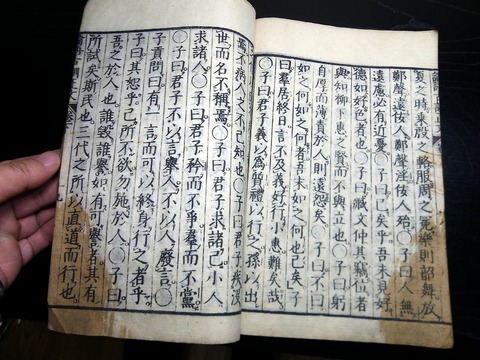 夏之時乘殷之輅服周之冕樂則韶舞放
鄭聲遠佞人鄭聲淫佞人殆○子曰人無
遠慮必有近憂○子曰已矣乎吾未見好
德如好色者也○子曰臧文仲其竊位者
與知柳下惠之賢而不與立也○子曰躬
自厚而薄責於人則遠怨矣○子曰不曰
如之何如之何者吾末如之何也已矣○子
曰羣居終日言不及義好行小惠難矣哉
○子曰君子義以爲質禮以行之孫以出
焉不病人之不己知也○子曰君子疾沒
世而名不稱焉○子曰君子求諸己小人
求諸人○子曰君子矜而不爭羣而不黨
○子曰君子不以言舉人不以人廢言○
子貢問曰有一言而可以終身行之者乎
子曰其恕乎己所不欲勿施於人○子曰
吾之於人也誰毀誰譽如有可譽者其有
所試矣斯民也三代之所以直道而行也